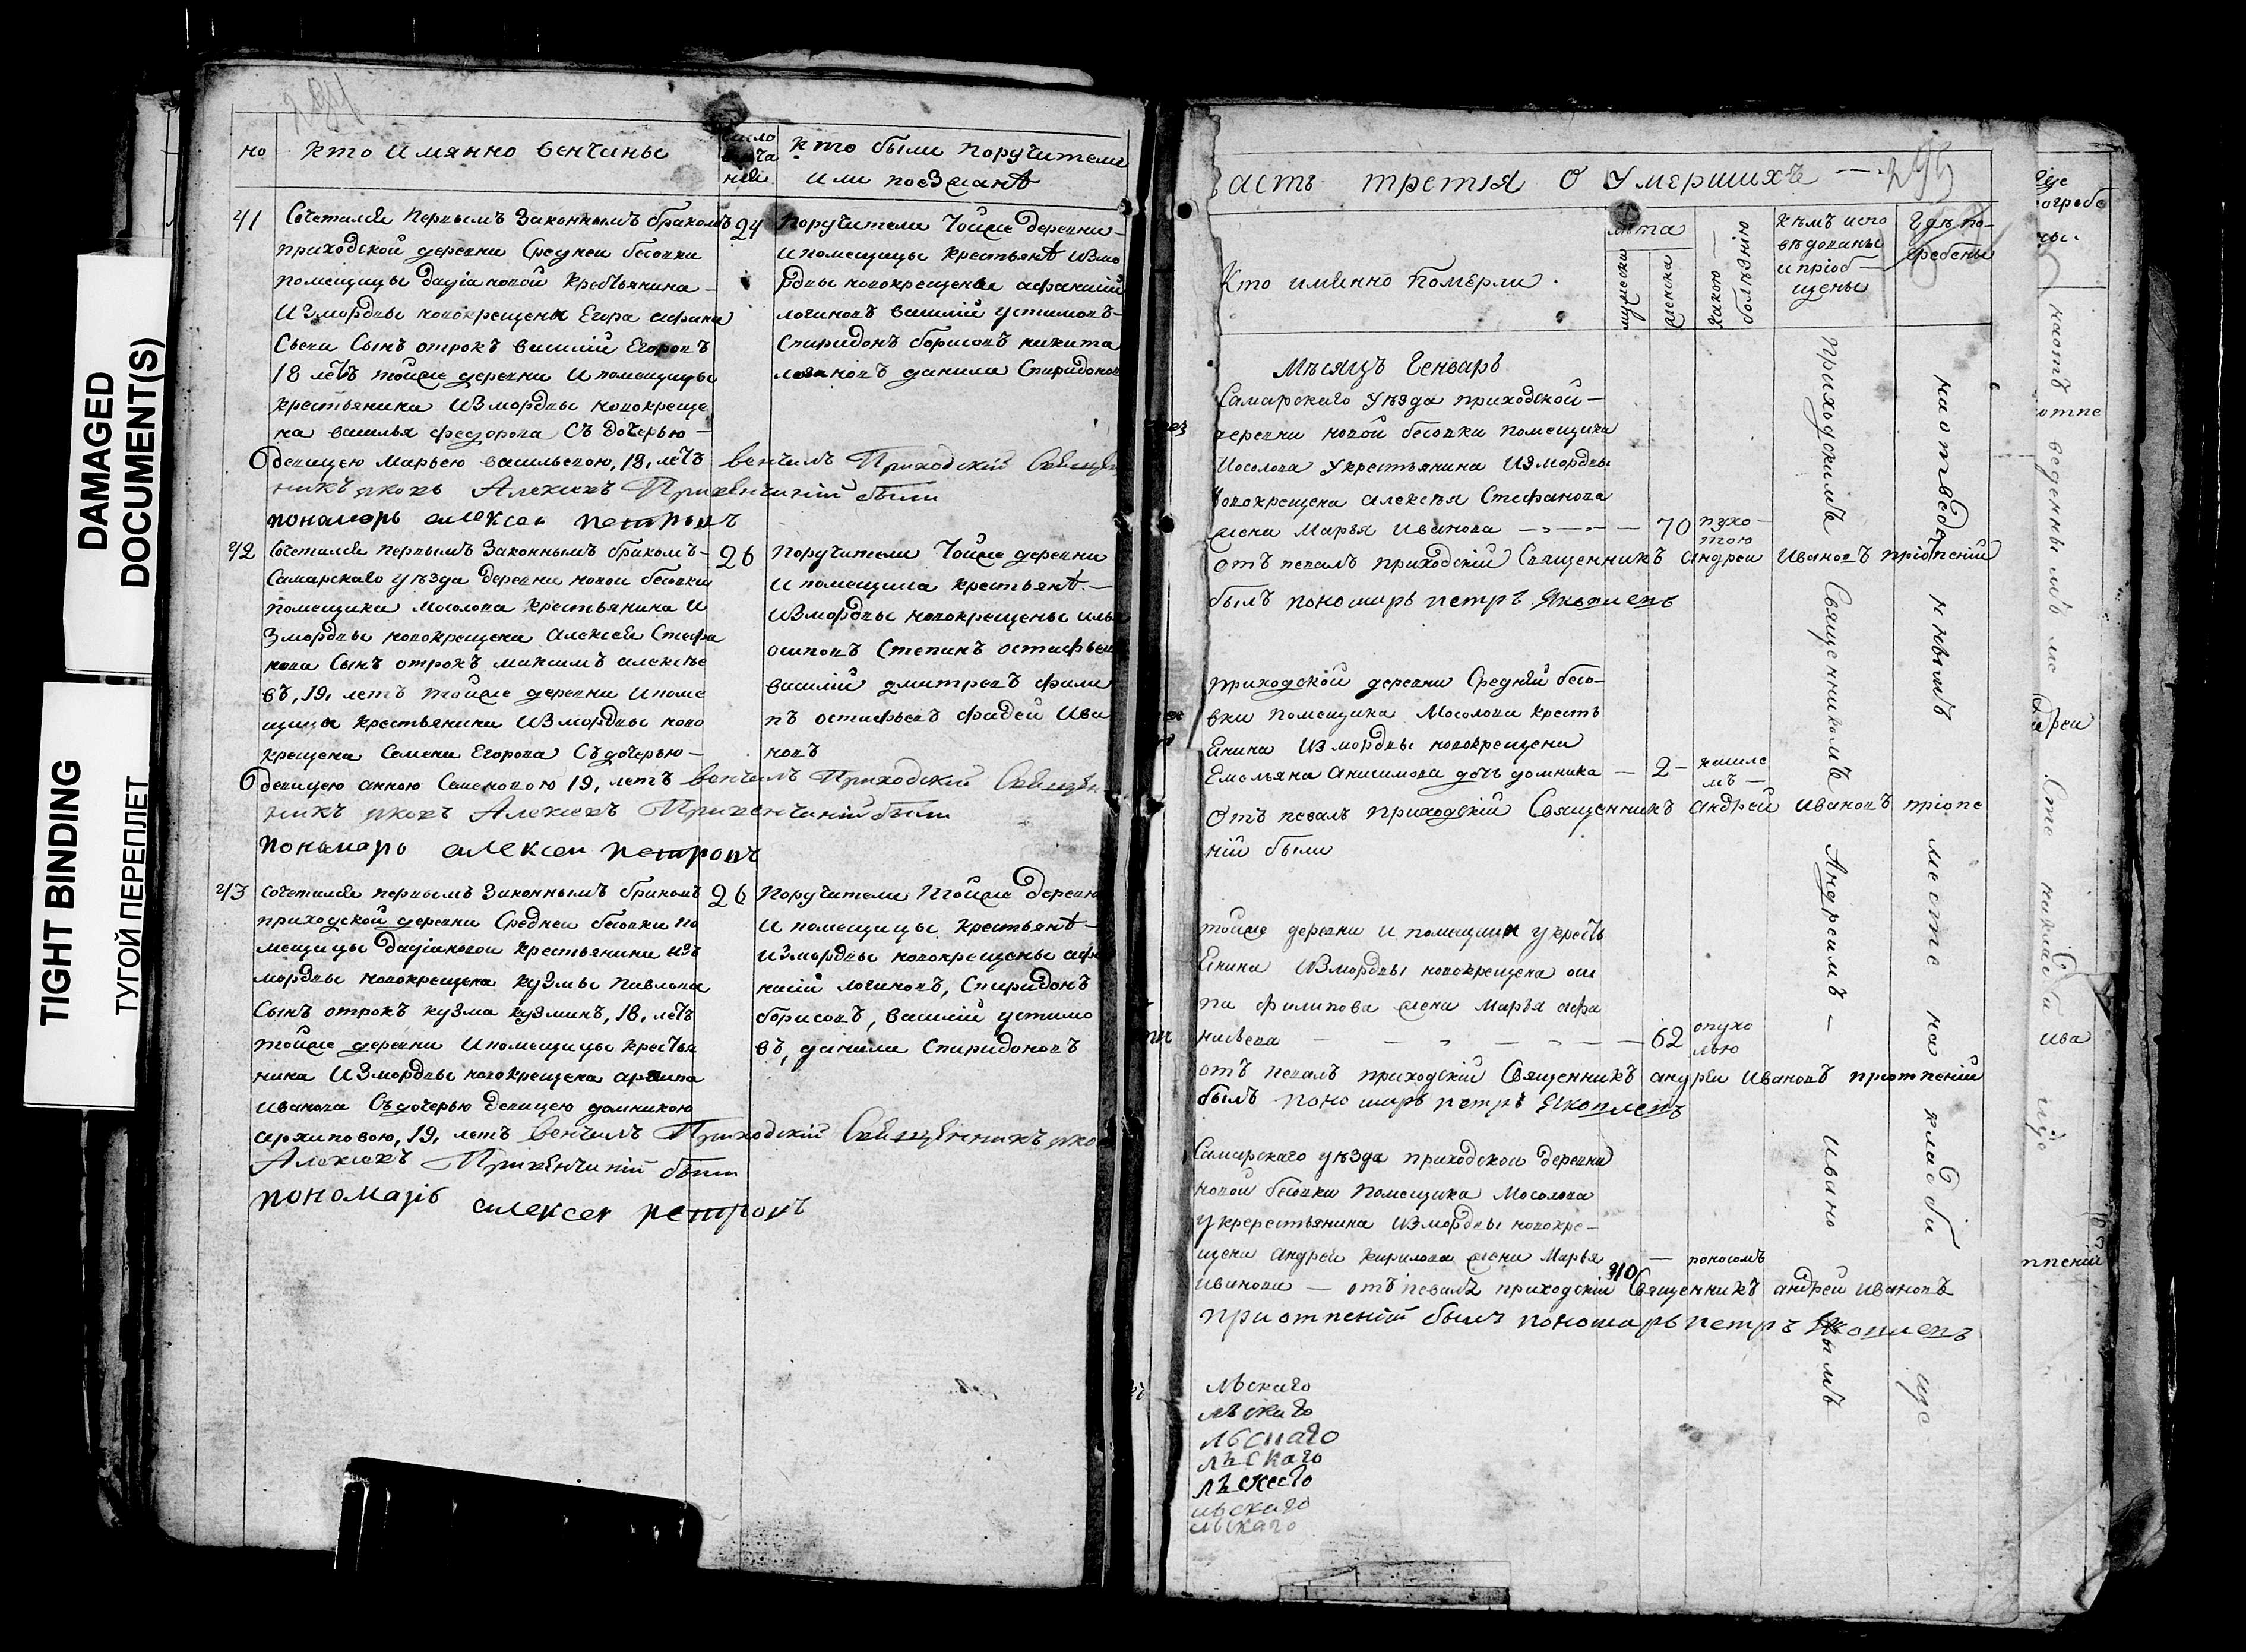 DAMAGED DOCUMENT(S)
TIGHT BINDING
ТУГОЙ ПЕРЕПЛЕТ
но
кто имянно венчаны
число венча ней
кто были поручители
или поезжанѣ
41
Сочетался первымъ законнымъ бракомъ
приходской деревни Средней бесовки
помещицы дадiановой крестьянина
измордвы новокрещена Егора афана
Сьева Сынъ отрокъ василiй Егоровъ
18 летъ тойже деревни ипомещицы
крестьянина измордвы новокреще
на василья федорова Съ дочерью
девицею Марьею васильевою, 18, летъ венчалъ Приходскiй Священ
никъ яковъ Алексѣевъ При венчанiи были
пономарь алексеи петровъ
24
Поручители тойже деревни
ипомещицы крестьянѣ измо
рдвы новокрещены афанасiй
логиновъ василiй устимовъ
Спиридонъ борисовъ никита
логиновъ данила Спиридонов
42
Сочетался первымъ законнымъ бракомъ
Самарскаго уѣзда деревни новои бесовки
помещика Мосолова крестьянина и
змордвы новокрещена алексея Стефа
нова Сынъ отрокъ максимъ алексѣе
въ, 19, летъ тойже деревни ипоме
щицы крестьянина измордвы ново
крещена Семена Егорова Съ дочерью
девицею анною Семеновою 19, летъ венчалъ Приходскiй Священ
никъ яковъ Алексѣевъ При венчанiи были
пономарь алексеи петровъ
26
Поручители тойже деревни
ипомещика крестьянѣ
измордвы новокрещены илья
осиповъ Степанъ остафьев
василiй дмитревъ фили
пъ остафьевъ фадей Ива
новъ
43
сочетался первымъ законнымъ бракомъ
приходской деревни Среднеи бесовки по
мещицы дадiановои крестьянина изъ
мордвы новокрещена кузмы павлова
Сынъ отрокъ кузма кузминъ, 18, летъ
тойже деревни ипомещицы крестья
нина измордвы новокрещена архипа
иванова Съ дочерью девицею домникою
архиповою, 19, летъ венчалъ Приходскiй Священникъ яков
Алексѣевъ При венчанiи были
пономарь алексеи петровъ
26
Поручители тойже деревни
ипомещицы крестьянѣ
измордвы новокрещены афа
насiй логиновъ, Спиридонъ
борисовъ, василiй устимо
въ, данила Спиридоновъ
асть третiя о умершихъ
295
Кто имянно померли
лѣта
мужеска
женска
какою болѣзнiю
кѣмъ испо
вѣдованы
и прiоб
щены
гдѣ по
гребены
Мѣсяцъ Генварь
Самарскаго уѣзда приходской
деревни новой бесовки помещика
Мосолова у крестьянина измордвы
новокрещена алексѣя Стефанова
жена Марья иванова 70 пухо
тою
отъ певалъ приходскiй Священникъ андреи ивановъ
былъ пономарь петръ Яковлевъ
приходской деревни Средней бесо
вки помещика Мосолова кресть
янина измордвы новокрещена
Емельяна анисимова дочь домника 2 кашле
мъ
отъ певалъ приходскiй Священникъ андрей ивановъ прiопе
нiи были
тойже деревни и помещика у кресть
янина измордвы новокрещена оси
па филипова жена Марья афа
насьева 62 опухо
лью
отъ певалъ приходскiй Священникъ андреи ивановъ приотпенiи
былъ пономарь петръ Яковлевъ
Самарскаго уѣзда приходскои деревни
новой бесовки помещика Мосолова
у кререстьянина измордвы новокре
щена андрея кирилова жена Марья
поносомъ
40
иванова отъ певалъ приходскiи Священникъ андрей ивановъ
приотпенiи былъ пономарь петръ Яковлевъ
приходскимъ Священникомъ Андреимъ Ивановымъ
на отведенномъ месте на кладби ще
льскаго
льскаго
льскаго
льскаго
льскаго
льскаго
льскаго